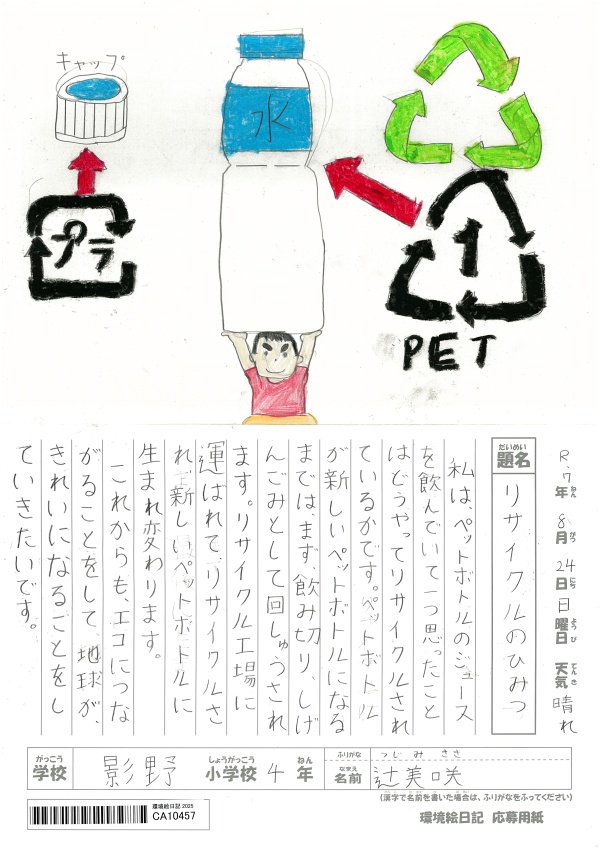 キャップ
水
プラ
1
PET
R.7年8月24日日曜日 天気晴れ
ねん がつ にち ようび てんき
だいめい
題名 リサイクルのひみつ
私は、ペットボトルのジュース
を飲んでいて一つ思ったこと
はどうやってリサイクルされ
ているかです。ペットボトル
が新しいペットボトルになる
までは、まず、飲み切り、しげ
んごみとして回しゅうされ
ます。リサイクル工場に
運ばれて、リサイクルさ
れ、新しいペットボトルに
生まれ変わります。
これからも、エコにつな
がることをして 地球が、
きれいになることをし
ていきたいです。
がっこう しょうがっこう ねん
学校 影野 小学校 4 年
ふりがな つじ みさき
なまえ
名前 辻美咲
(漢字で名前を書いた場合は、ふりがなをふってください)
環境絵日記 2025
CA10457
環境絵日記 応募用紙